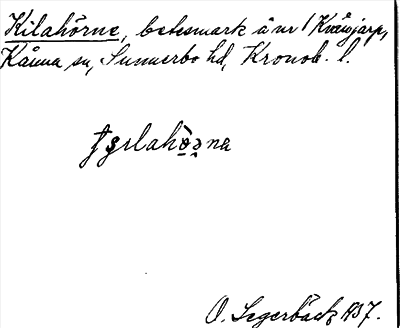 Kilahörne, betesmark å nr 1 Kvänjarp,
Kånna sn, Sunnerbo hd, Kronob. l.
O. Segerbäck 1937.